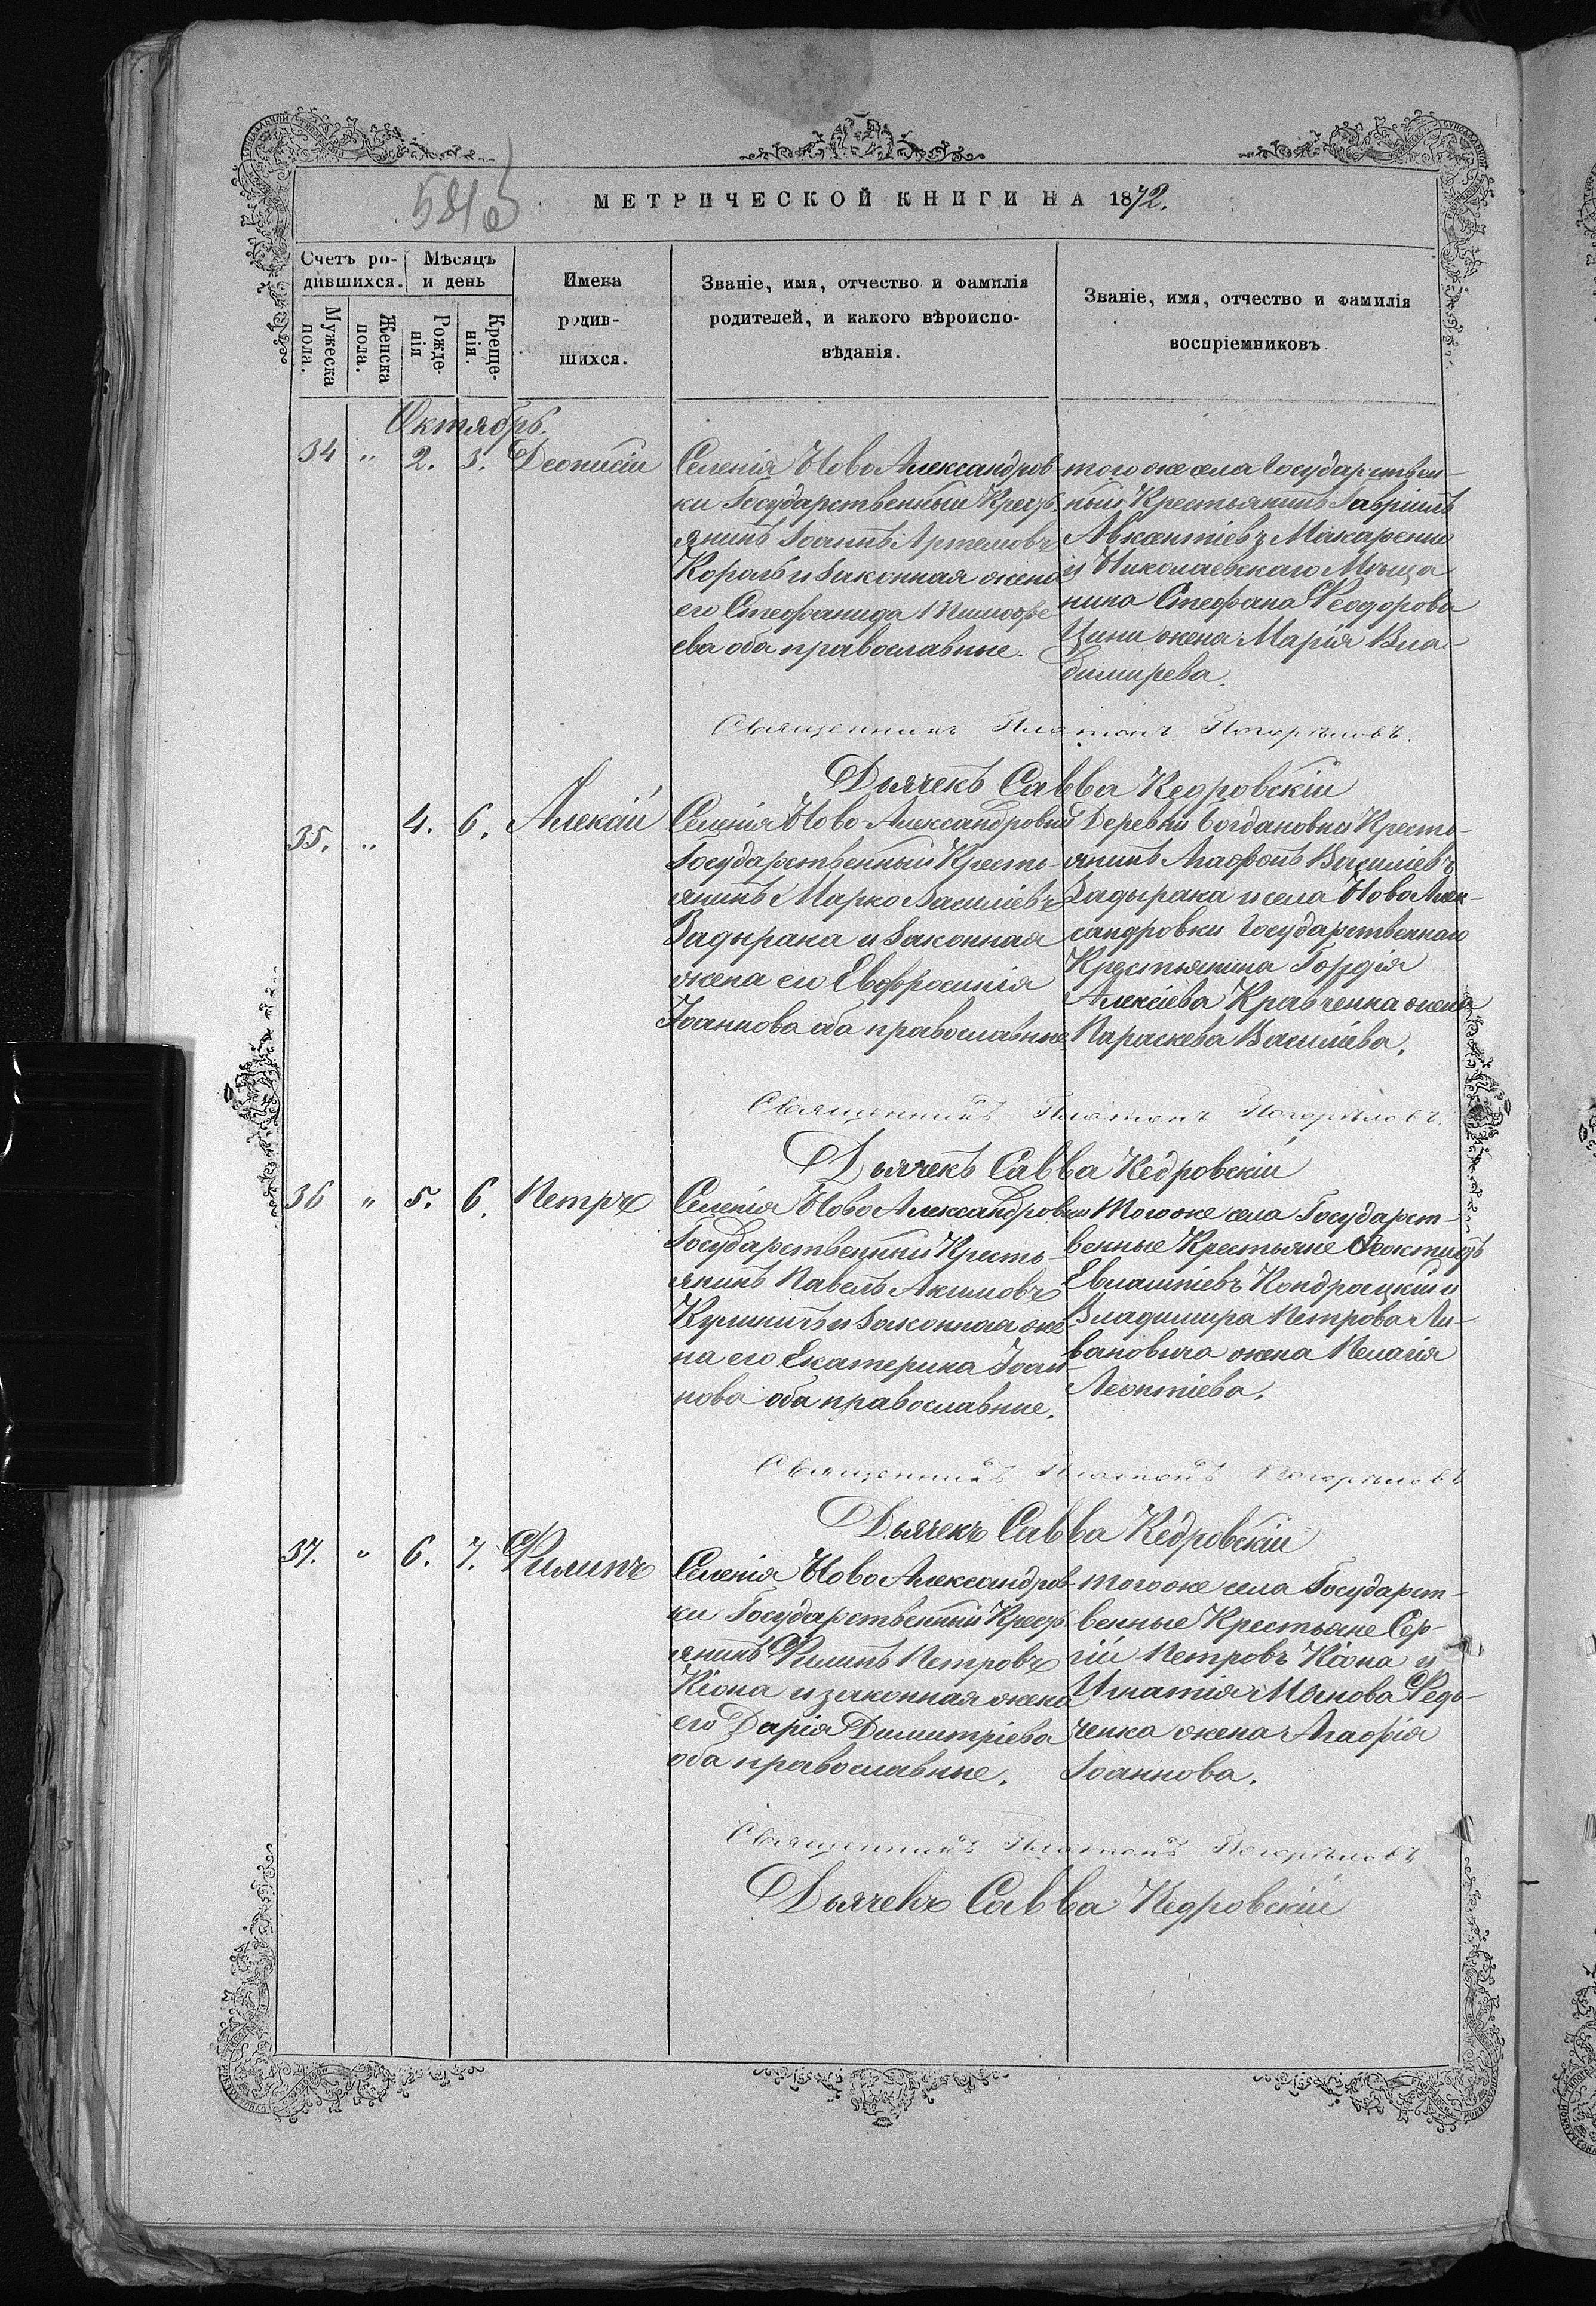 МЕТРИЧЕСКОЙ КНИГИ НА 1872.
Счетъ ро-
дившихся.
Мѣсяцъ
и день
Имена
родив-
шихся.
Званіе, имя, отчество и фамилія
родителей, и какого вѣроиспо-
вѣданія.
Званіе, имя, отчество и фамилія
воспріемниковъ.
Мужеска
пола.
Женска
пола.
Рожде-
нія
Креще-
нія.
Октябрь.
34 " 2. 3. Деонисій
Селенія Ново Александров
ки Государственный Кресть
янинъ Іоаннъ Артемовъ
Король и законная жена
его Стефанида Тимофе
ева оба православные.
того же села Государствен-
ный Крестьянинъ Гавріилъ
Авксентіевъ Макаренко
и Николаевскаго Мѣща
нина Стефана Феодорова
жена Марія Вла-
димирева.
Священникъ Платонъ Погорѣловъ.
Дьячекъ Савва Кедровскій
35. " 4. 6. Алексій
Селенія Ново-Александровки
Государственный Кресть-
янинъ Марко Василіевъ
Задырака и законная
жена его Евфросинія
Іоаннова оба православные
Деревни Богдановки Кресть-
янинъ Агафонъ Василіевъ
Задырака и села Ново Алек-
сандровки Государственнаго
Крестьянина Гордія
Алексіева Кравченка жена
Параскева Василіева.
Священникъ Платонъ Погорѣловъ.
Дьячекъ Савва Кедровскій
36 " 5. 6. Петръ
Селенія Ново Александровки
Государственный Кресть-
янинъ Павелъ Акимовъ
и законная же-
на его Екатерина Іоан
нова оба православные.
Того же села Государст-
венные Крестьяне Феоктистъ
Евлампіевъ Кондрацкій и
Владимира Петрова Ли-
вановича жена Пелагія
Леонтіева.
Священникъ Платонъ Погорѣловъ
Дьячекъ Савва Кедровскій
37. " 6. 7. Филипъ
Селенія Ново Александров-
ки Государственный Кресть
янинъ Филипъ Петровъ
Кіопа и законная жена
его Дарія Димитріева
оба православные.
того же села Государст-
венные Крестьяне Сер-
гій Петровъ Кіопа и
Игнатія Федь-
ченка жена Агафія
Іоаннова.
Священникъ Платонъ Погорѣловъ
Дьячекъ Савва Кедровскій